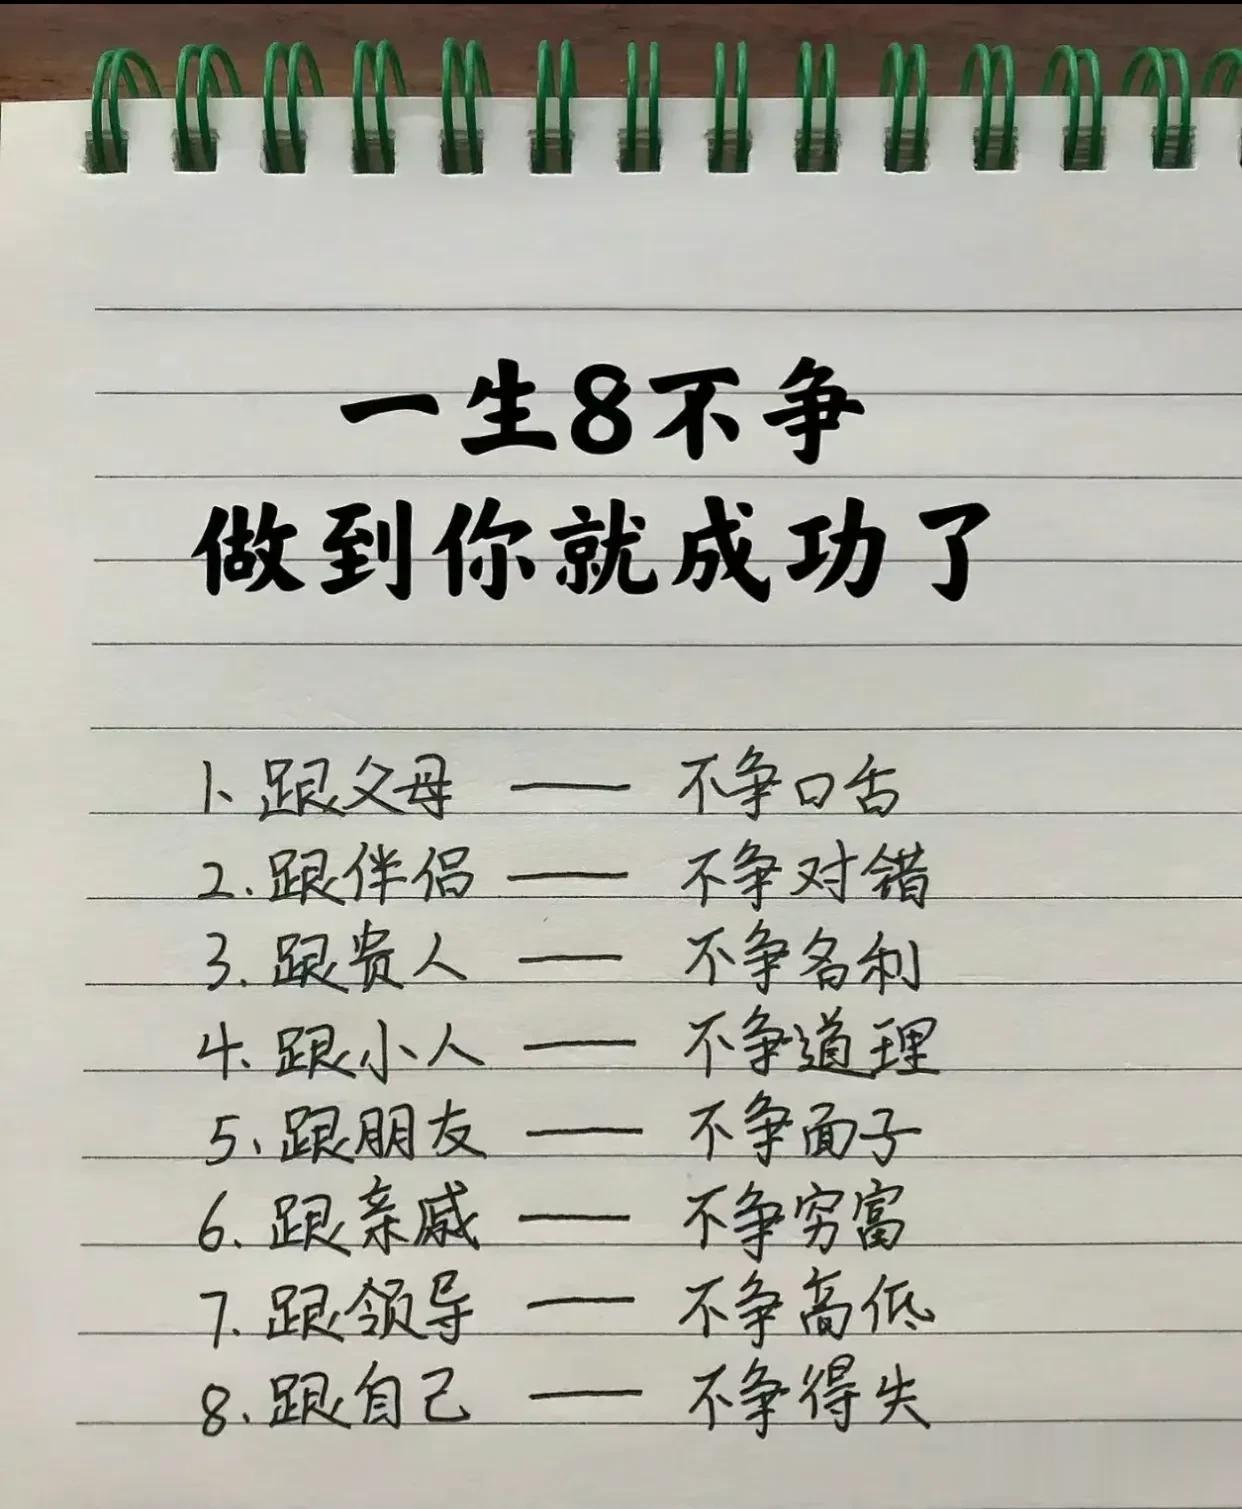 一生8不争
做到你就成功了
1、跟父母 —— 不争口舌
2.跟伴侣 —— 不争对错
3.跟贵人 —— 不争名利
4.跟小人 —— 不争道理
5、跟朋友 —— 不争面子
6、跟亲戚 —— 不争穷富
7.跟领导 —— 不争高低
8、跟自己 —— 不争得失